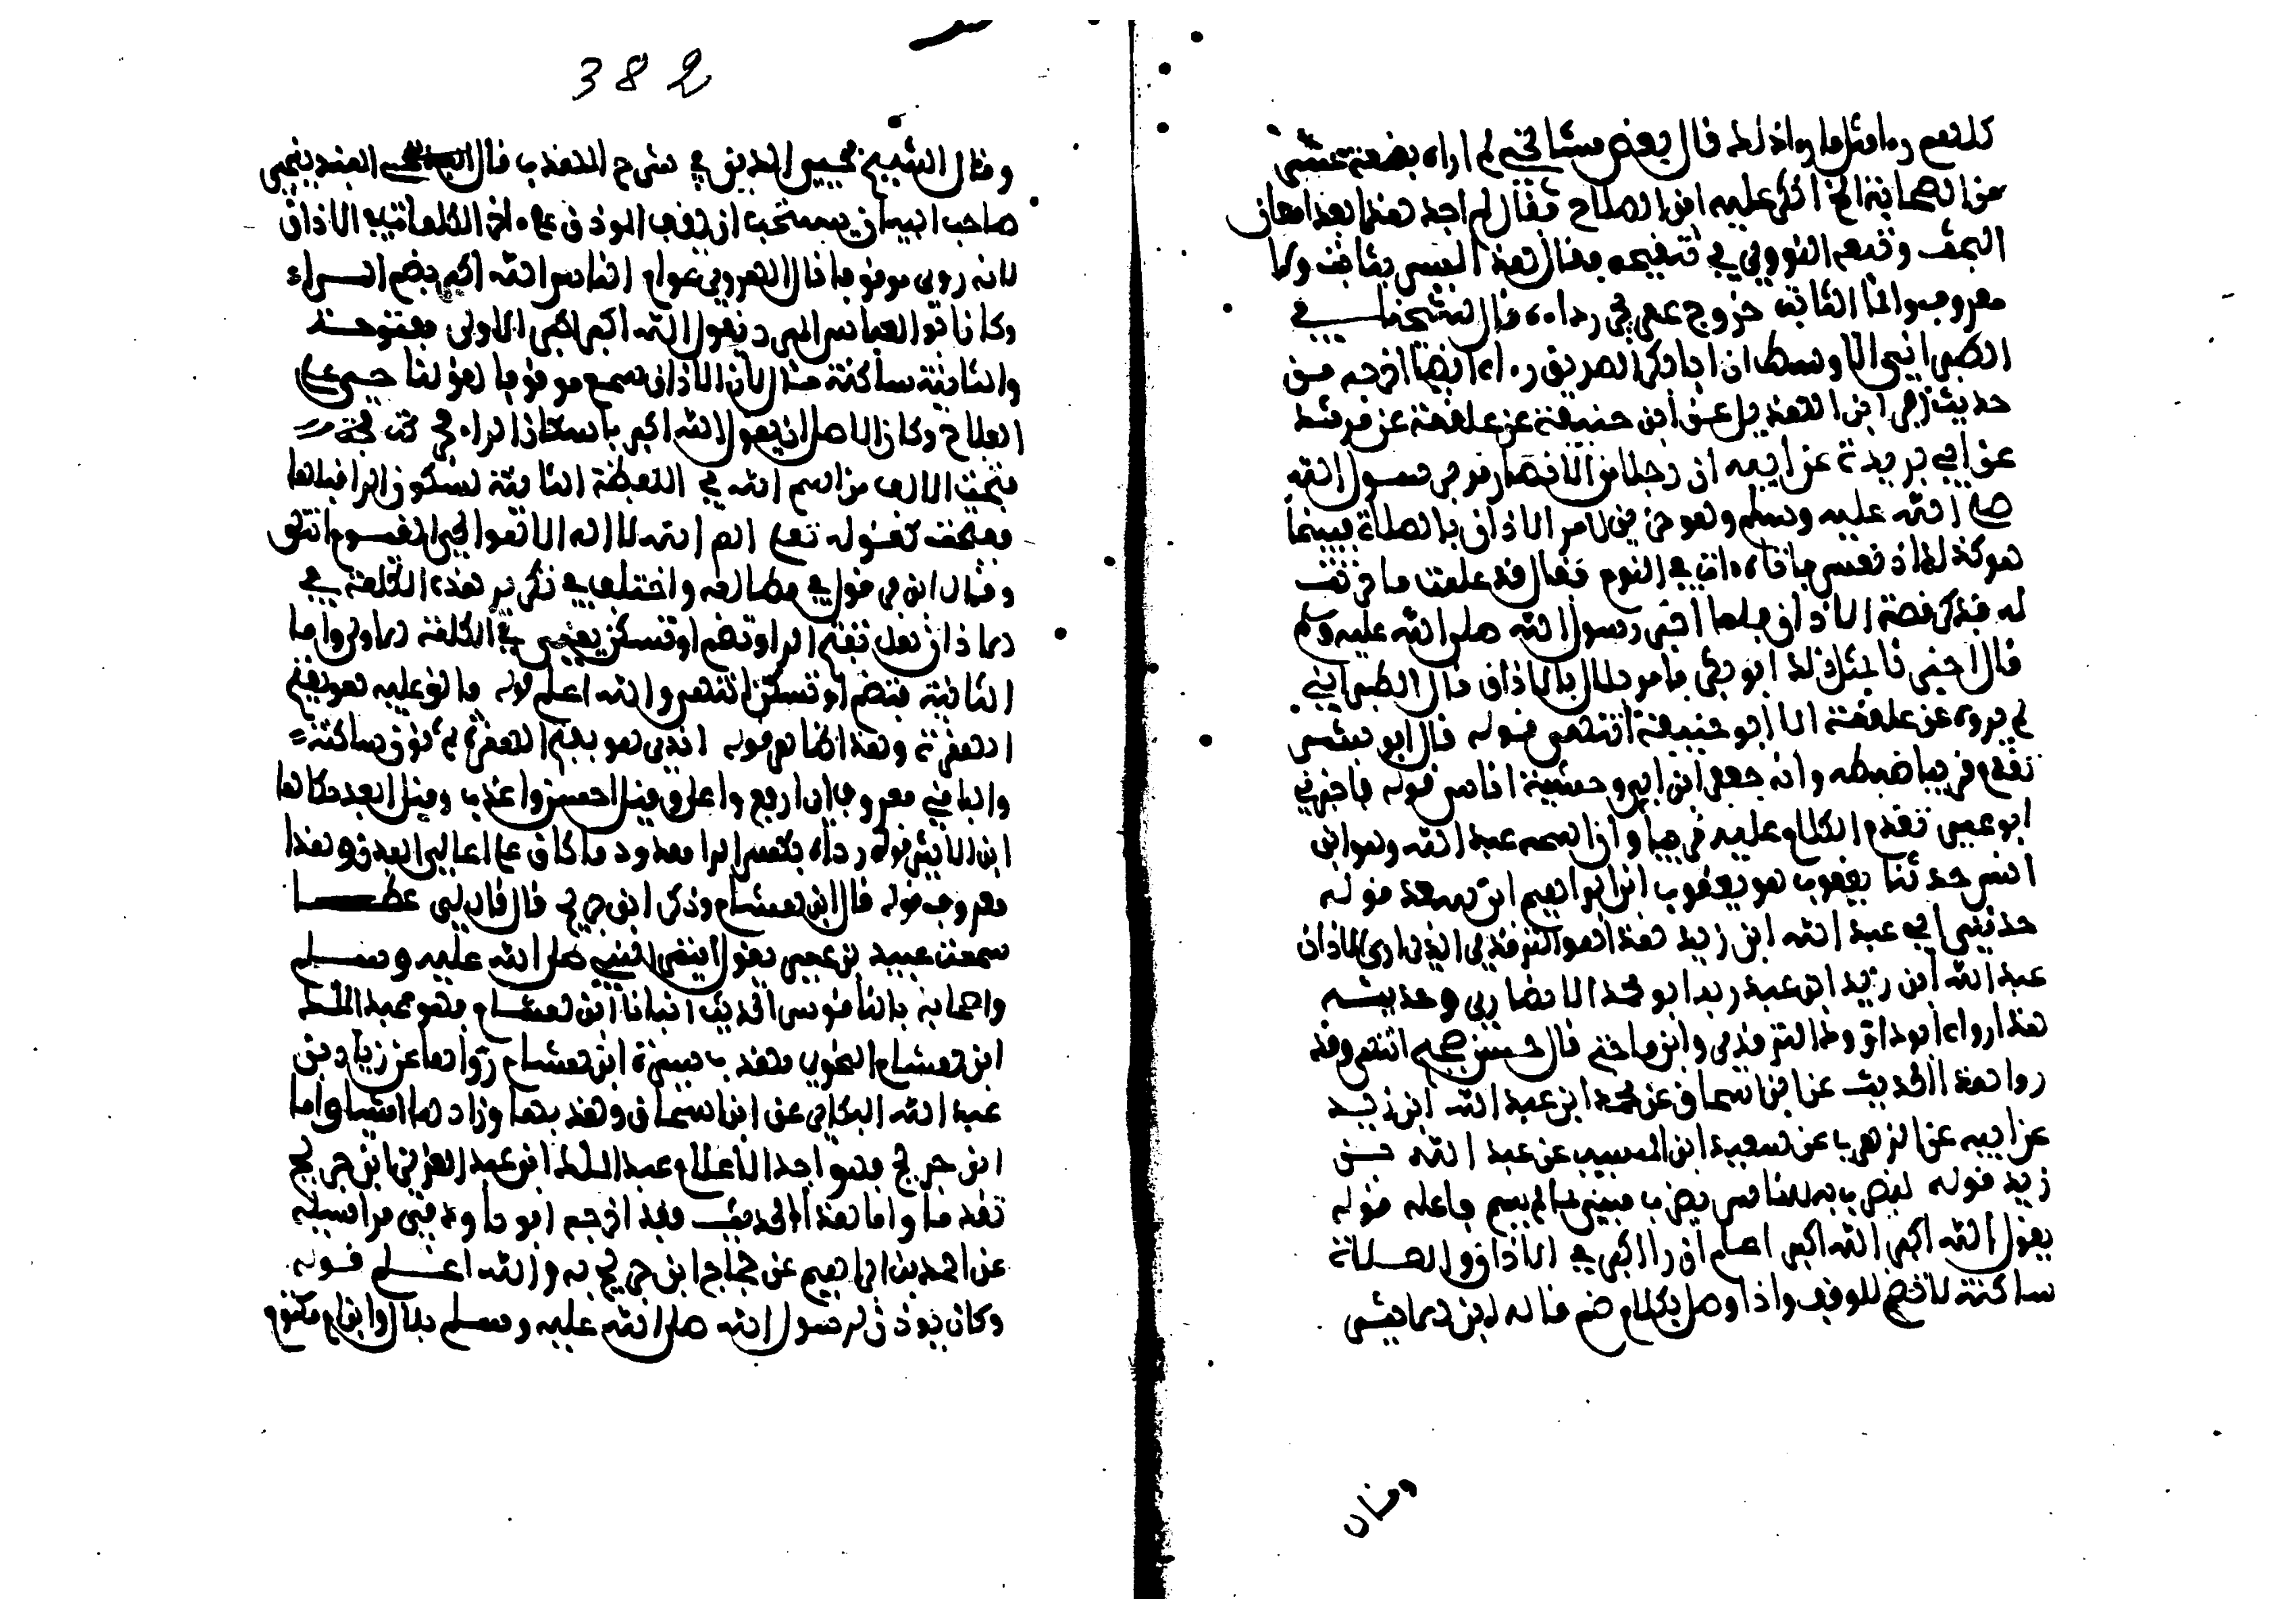 كلهم وما مثلها واذلط قال بعض مشائخي لم اراه بضعة عشر
من الصحابة الخ انكر عليه ابن الصلاح فقال لم اجد هذا بعد امعان
البحث وتبعه النووي في تنقيحه فقال هذا ليس بثابت ولا
معروف وانما الثابت خروج عمر يجر رداءه قال شيخنا في
الطبراني الاوسط ان ابا بكر الصديق راه ايضا اخرجه من
حديث زفر ابن الهذيل عن ابن حنيفة عن علقمة عن مرثد
عن ابي بريدة عن ابيه ان رجلا من الانصار مر برسول الله
صلى الله عليه وسلم وهو حزين لامر الاذان بالصلاة فبينما
هو كذلك اذ نعس فاتاه ات في النوم فقال قد علمت ما حزنت
له فذكر قصة الاذان فلما اخبر رسول الله صلى الله عليه وسلم
قال اخبرنا بمثل ذلك ابو بكر فامر بلال بالاذان قال الطبراني
لم يروه عن علقمة الا ابو حنيفة انتهى قوله قال ابو بشر
تقدم قريبا ضبطه وانه جعفر ابن ابي وحشية اناس قوله فاخبرني
ابو عمير تقدم الكلام عليه قريبا وان اسمه عبد الله وهو ابن
انس حدثنا يعقوب هو يعقوب ابن ابراهيم ابن سعد قوله
حدثني ابي عبد الله ابن زيد هذا هو الترمذي الذي اري الاذان
عبد الله ابن زيد ابن عبد ربه ابو محمد الانصاري وحديثه
هذا رواه ابو داود والترمذي وابن ماجه قال حسن صحيح انتهى وقد
روا هذا الحديث عن ابن اسحاق عن محمد ابن عبد الله ابن زيد
عن ابيه عن الزهري عن سعيد ابن المسيب عن عبد الله بن
زيد قوله ليضرب به للناس يضرب مبني لما لم يسم فاعله قوله
يقول الله اكبر الله اكبر اعلم ان را اكبر في الاذان والصلاة
ساكنة لا تضم للوقف واذا وصل بكلام ضم قاله ابن
وقال
382
وقال الشيخ محيي الدين في شرح المهذب قال البندنيجي
صاحب البيان يستحب ان يقف المؤذن على اخر الكلمات في الاذان
لانه روي موقوفا قال الهروي عوام الناس الله اكبر بضم الراء
وكان ابو العباس المبرد يقول الله اكبر الله اكبر الاولى مفتوحة
والثانية ساكنة قال لان الاذان سمع موقوفا لقولنا حي على
الفلاح وكان الاصل ان يقول الله اكبر باسكان الراء
فتحة الالف من اسم الله في اللفظة الثانية لسكون الرا قبلها
ففتحت كقوله تعالى الم الله لا اله الا هو الحي القيوم انتهى
وقال ابن قرقول في مطالعه واختلف في ذكر هذه الكلمة في
الاذان هل تفتح الرا او تضم او تسكن يعني في الكلمة الاولى واما
الثانية فتضم او تسكن انتهى والله اعلم قوله فالق عليه هو بفتح
الهمزة وهذا ظاهر قوله اندى هو بفتح الهمزة ثم نون ساكنة
والباقي معروف اي ارفع واعلى وقيل احسن واعذب وقيل ابعد حكاها
ابن الاثير قوله رداه بكسر الرا ممدود ما كان على اعالي البدن وهذا
معروف قوله قال ابن هشام وذكر ابن جريج قال قال لي عطا
سمعت عبيد بن عمير يقول ايتمر النبي صلى الله عليه وسلم
واصحابه بالناقوس الحديث انبانا ابن هشام فهو عبد الملك
ابن هشام النحوي مهذب سيرة ابن هشام رواها عن زياد بن
عبد الله البكاي عن ابن اسحاق وهذبها وزاد لها اشيا واما
ابن جريج فهو احد الاعلام عبد الملك ابن عبد العزيز ابن جريج
تقدما واما هذا الحديث فقد اخرجه ابو داود في مراسيله
عن احمد بن ابراهيم عن حجاج ابن جريج به والله اعلم قوله
وكان يؤذن لرسول الله صلى الله عليه وسلم بلال وابن ام مكتوم